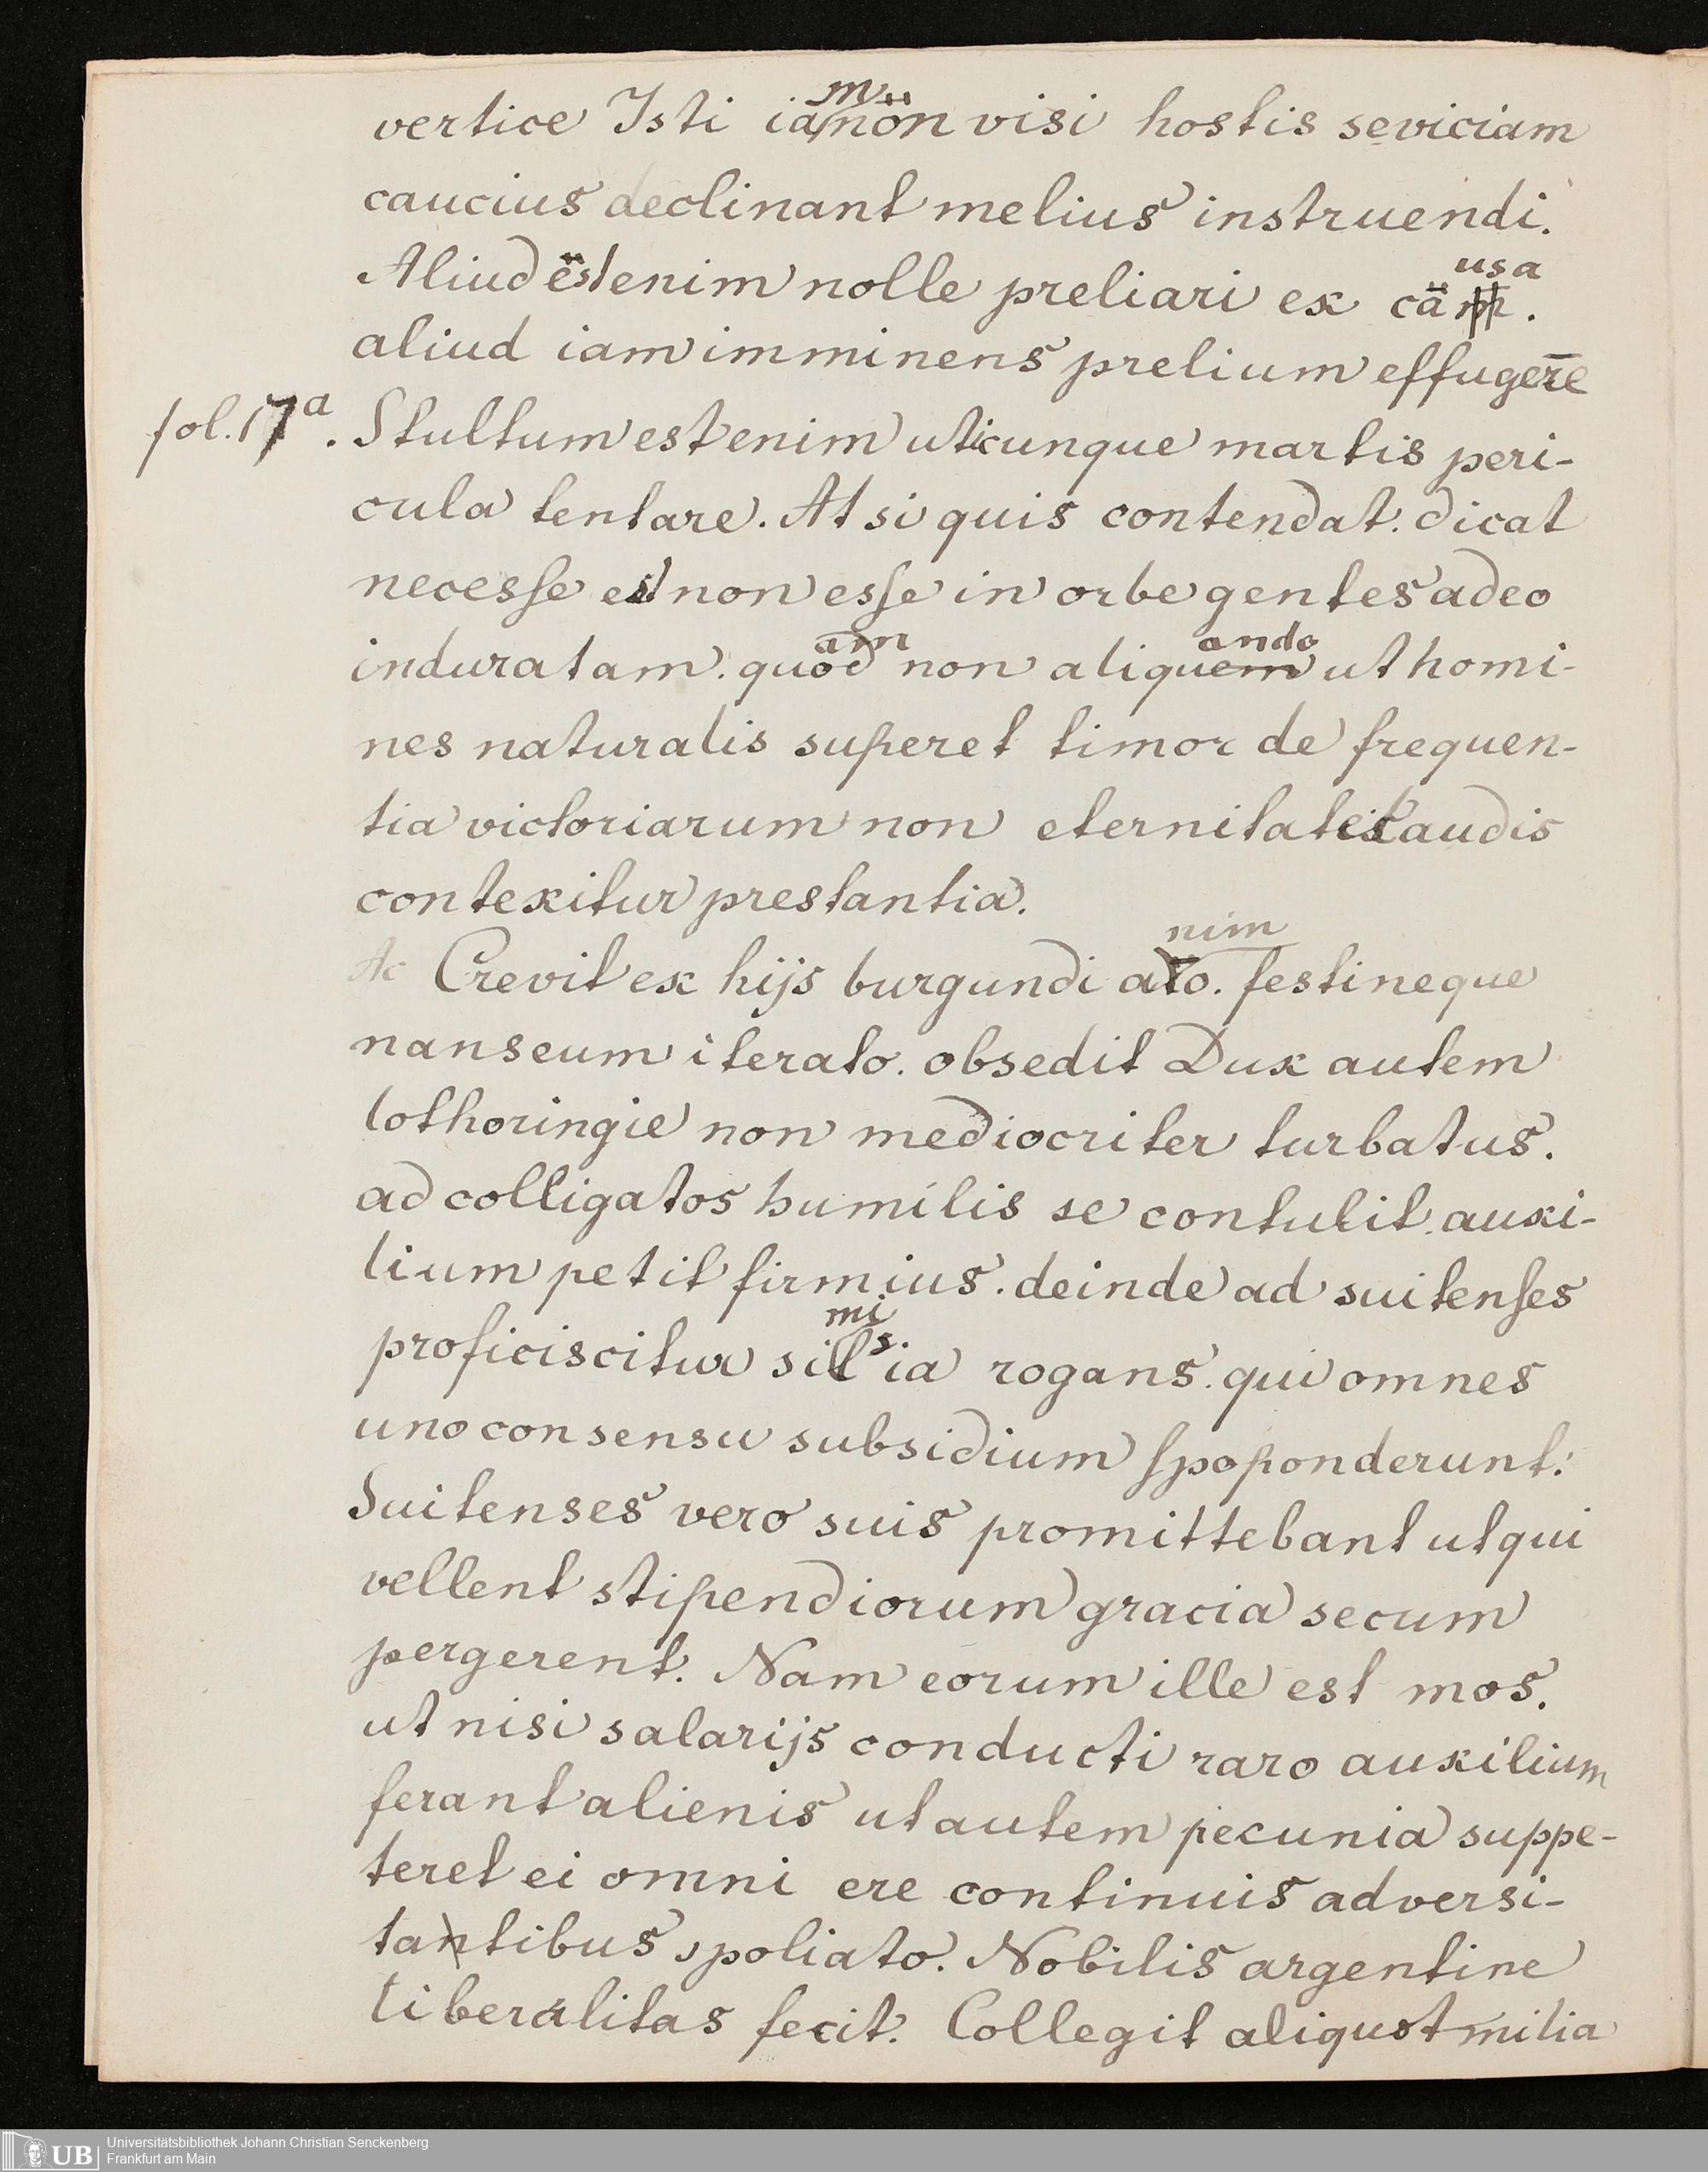 vertice Isti iam non visi hostis seviciam
caucius declinant melius instruendi.
Aliud est enim nolle preliari ex causa.
aliud iam imminens prelium effugere
fol. 17a. Stultum est enim uticunque martis peri-
cula tentare. At si quis contendat. dicat
necesse est non esse in orbe gentes adeo
induratam. quam non aliquando ut homi-
nes naturalis superet timor de frequen-
tia victoriarum non eternitatis laudis
contexitur prestantia.
Ac Crevit ex hijs burgundi animo. festineque
nanseum iterato. obsedit Dux autem
lothoringie non mediocriter turbatus.
ad colligatos humilis se contulit. auxi-
lium petit firmius. deinde ad suitenses
proficiscitur similia rogans. qui omnes
uno consensu subsidium spoponderunt:
Suitenses vero suis promittebant ut qui
vellent stipendiorum gracia secum
pergerent. Nam eorum ille est mos.
ut nisi salarijs conducti raro auxilium
ferant alienis ut autem pecunia suppe-
teret ei omni ere continuis adversi-
tatibus spoliato. Nobilis argentine
liberalitas fecit. Collegit aliquot milia
Universitätsbibliothek Johann Christian Senckenberg
UB Frankfurt am Main